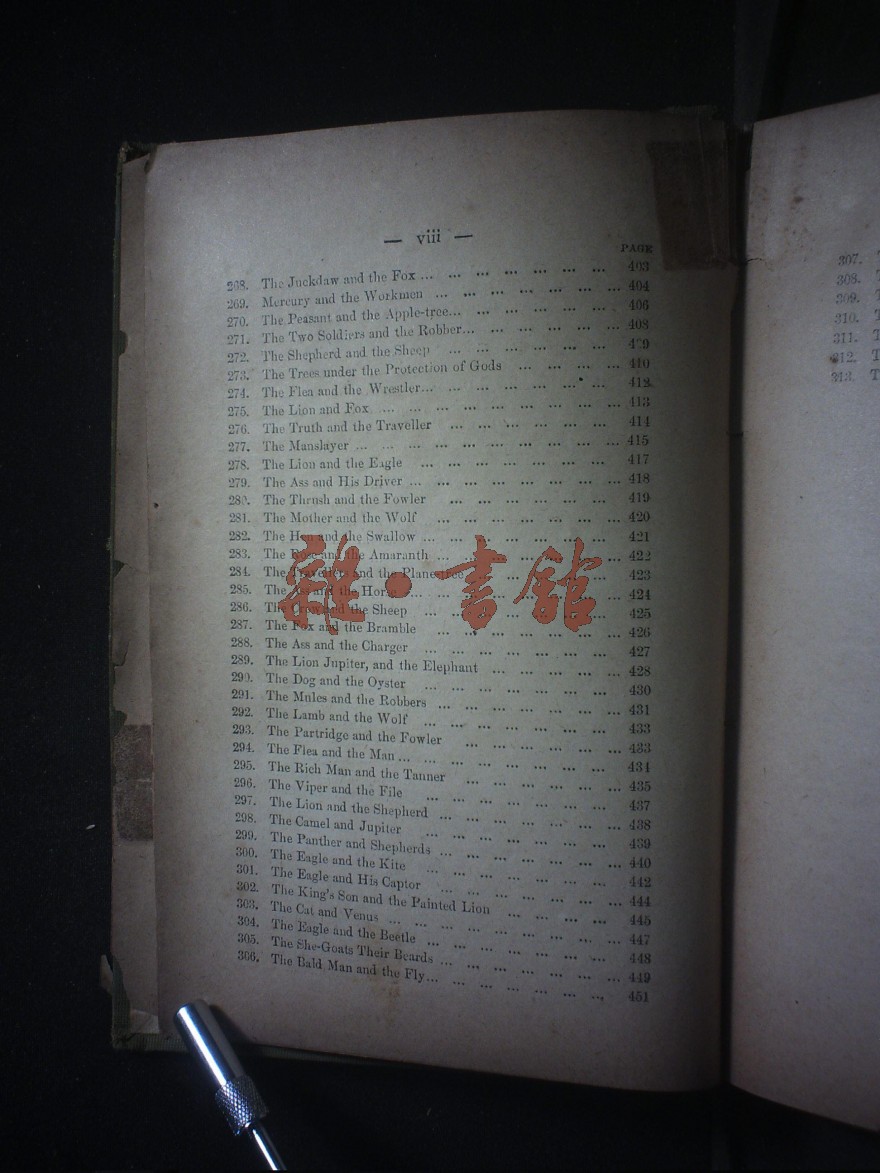 — viii —
PAGE
268. The Jackdaw and the Fox ... ... ... ... ... ... ... 403
269. Mercury and the Workmen ... ... ... ... ... ... ... 404
270. The Peasant and the Apple-tree... ... ... ... ... ... 406
271. The Two Soldiers and the Robber... ... ... ... ... ... 408
272. The Shepherd and the Sheep ... ... ... ... ... ... 409
273. The Trees under the Protection of Gods ... ... ... ... 410
274. The Flea and the Wrestler... ... ... ... ... ... ... 412
275. The Lion and Fox ... ... ... ... ... ... ... ... ... 413
276. The Truth and the Traveller ... ... ... ... ... ... 414
277. The Manslayer ... ... ... ... ... ... ... ... ... ... 415
278. The Lion and the Eagle ... ... ... ... ... ... ... 417
279. The Ass and His Driver ... ... ... ... ... ... ... ... 418
280. The Thrush and the Fowler ... ... ... ... ... ... 419
281. The Mother and the Wolf ... ... ... ... ... ... ... 420
282. The Hen and the Swallow ... ... ... ... ... ... ... 421
283. The Rose and the Amaranth ... ... ... ... ... ... ... 422
284. The Travellers and the Plane-tree ... ... ... ... ... 423
285. The Ass and the Horse ... ... ... ... ... ... ... ... 424
286. The Crow and the Sheep ... ... ... ... ... ... ... 425
287. The Fox and the Bramble ... ... ... ... ... ... ... 426
288. The Ass and the Charger ... ... ... ... ... ... ... 427
289. The Lion Jupiter, and the Elephant ... ... ... ... ... 428
290. The Dog and the Oyster ... ... ... ... ... ... ... 430
291. The Mules and the Robbers ... ... ... ... ... ... ... 431
292. The Lamb and the Wolf ... ... ... ... ... ... ... 433
293. The Partridge and the Fowler ... ... ... ... ... ... 433
294. The Flea and the Man ... ... ... ... ... ... ... ... 434
295. The Rich Man and the Tanner ... ... ... ... ... ... 435
296. The Viper and the File ... ... ... ... ... ... ... 437
297. The Lion and the Shepherd ... ... ... ... ... ... ... 438
298. The Camel and Jupiter ... ... ... ... ... ... ... 439
299. The Panther and Shepherds ... ... ... ... ... ... ... 440
300. The Eagle and the Kite ... ... ... ... ... ... ... 442
301. The Eagle and His Captor ... ... ... ... ... ... ... 444
302. The King's Son and the Painted Lion ... ... ... ... 445
303. The Cat and Venus ... ... ... ... ... ... ... ... ... 447
304. The Eagle and the Beetle ... ... ... ... ... ... ... 448
305. The She-Goats Their Beards ... ... ... ... ... ... ... 449
306. The Bald Man and the Fly... ... ... ... ... ... ... 451
雜·書館
307.
308. T
309. T
310. T
311. T
312. T
313. T